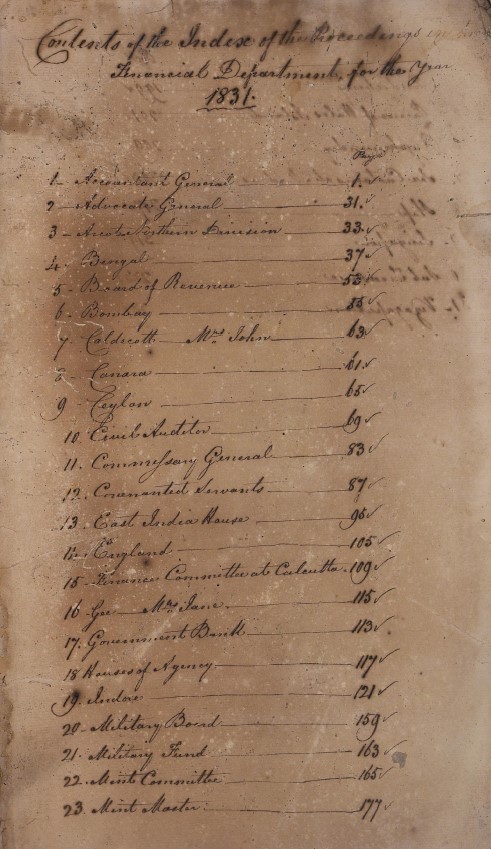 Contents of the Index of the Proceedings in the
Financial Department, for the Year
1831.
Page
1 - Accountant General 1.✓
2 - Advocate General 31.✓
3 - Arcot Northern Division 33.✓
4. Bengal 37✓
5 - Board of Revenue 53✓
6 - Bombay 55✓
7 - Caldecott Mrs John 63✓
8 - Canara 61✓
9 - Ceylon 65✓
10. Civil Auditor 69✓
11. Commissary General 83✓
12. Covenanted Servants 87✓
13. East India House 95✓
14. England 105✓
15 - Finance Committee at Calcutta. 109✓
16 Gee Mrs Jane. 115✓
17. Government Bank 113✓
18 Houses of Agency 117✓
19. Indore 121✓
20 - Military Board 159✓
21. Military Fund 163✓
22. Mint Committee 165✓
23. Mint Master 177✓